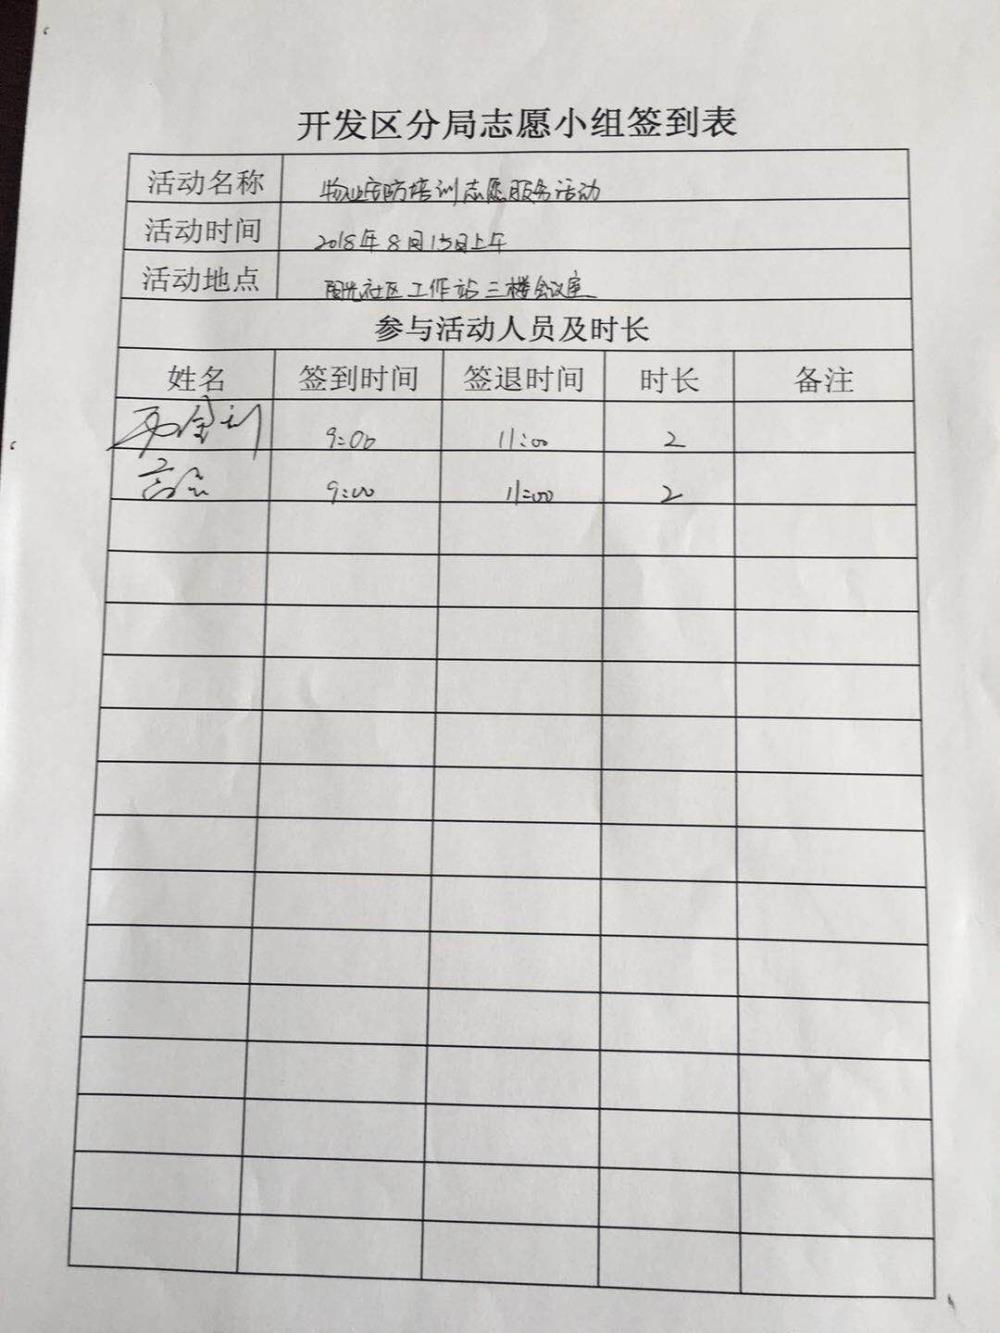 开发区分局志愿小组签到表
活动名称 物业安防培训志愿服务活动
活动时间 2018年8月15日上午
活动地点 阳光社区工作站三楼会议室
参与活动人员及时长
姓名 签到时间 签退时间 时长 备注
9:00 11:00 2
9:00 11:00 2